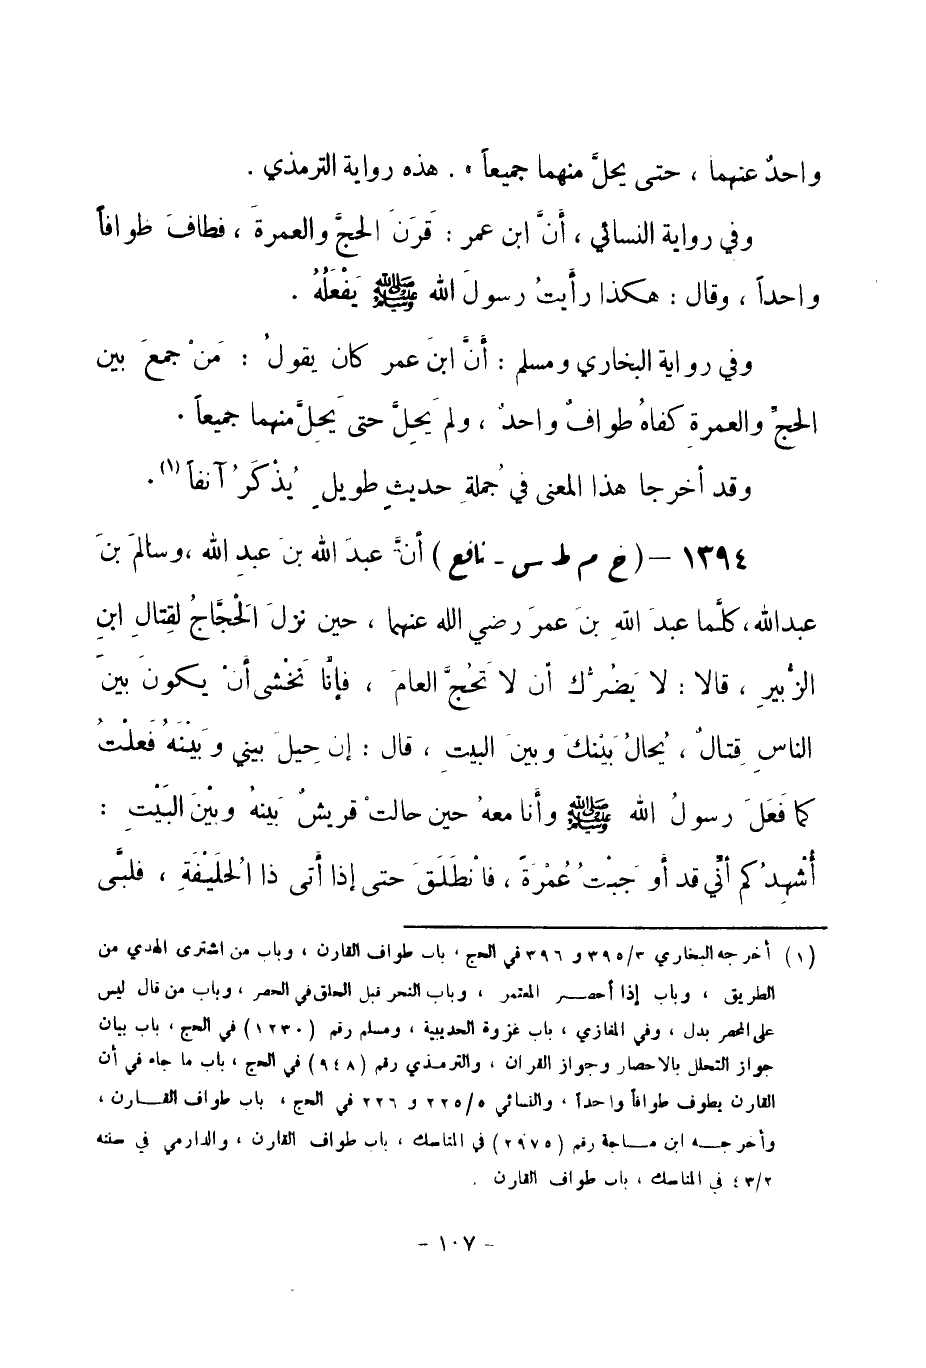 واحدٌ عنهما ، حتى يحلَّ منهما جميعاً » . هذه رواية الترمذي .
وفي رواية النسائي ، أنَّ ابن عمر : قَرَنَ الحجَّ والعمرةَ ، فطافَ طوافاً
واحداً ، وقال : هكذا رأيتُ رسولَ الله ﷺ يَفْعَلُهُ .
وفي رواية البخاري ومسلم : أنَّ ابنَ عمر كان يقولُ : مَنْ جمعَ بين
الحجِّ والعمرةِ كفاهُ طوافٌ واحدٌ ، ولم يَحِلَّ حتى يَحِلَّ منهما جميعاً .
وقد أخرجا هذا المعنى في جُملةِ حديثٍ طويلٍ يُذْكَرُ آنفاً (١) .
١٣٩٤ – ( خ م ط س - نافع ) أنَّ عبدَ الله بنَ عبدِ الله ، وسالمَ بنَ
عبدالله ، كلَّما عبدَ اللهِ بنَ عمرَ رضي الله عنهما ، حين نزلَ الحْجَّاجُ لقِتالِ ابنِ
الزُّبيرِ ، قالا : لا يَضُرُّك أن لا تَحُجَّ العامَ ، فإنَّا نَخْشى أنْ يكونَ بينَ
الناسِ قِتالٌ ، يُحالُ بَيْنكَ وبينَ البيتِ ، قال : إن حِيلَ بيني وبَيْنَهُ فَعلْتُ
كما فَعَلَ رسولُ الله ﷺ وأنا معهُ حين حالتْ قريشٌ بَينهُ وبْينَ البَيْتِ :
أُشْهِدُكم أنِّي قد أوجَبْتُ عُمْرَةً ، فانْطَلَقَ حتى إذا أتى ذا الْحلَيْفَةِ ، فلبَّى
(١) أخرجه البخاري ٣٩٥/٣ و ٣٩٦ في الحج ، باب طواف القارن ، وباب من اشترى الهدي من
الطريق ، وباب إذا أحصر المعتمر ، وباب النحر قبل الحلق في الحصر ، وباب من قال ليس
على المحصر بدل ، وفي المغازي ، باب غزوة الحديبية ، ومسلم رقم (١٢٣٠) في الحج ، باب بيان
جواز التحلل بالاحصار وجواز القران ، والترمذي رقم (٩٤٨) في الحج ، باب ما جاء في أن
القارن يطوف طوافاً واحداً ، والنسائي ٢٢٥/٥ و ٢٢٦ في الحج ، باب طواف القارن ،
وأخرجه ابن ماجة رقم (٢٩٧٥) في المناسك ، باب طواف القارن ، والدارمي في سننه
٤٣/٢ في المناسك ، باب طواف القارن .
- ١٠٧ -